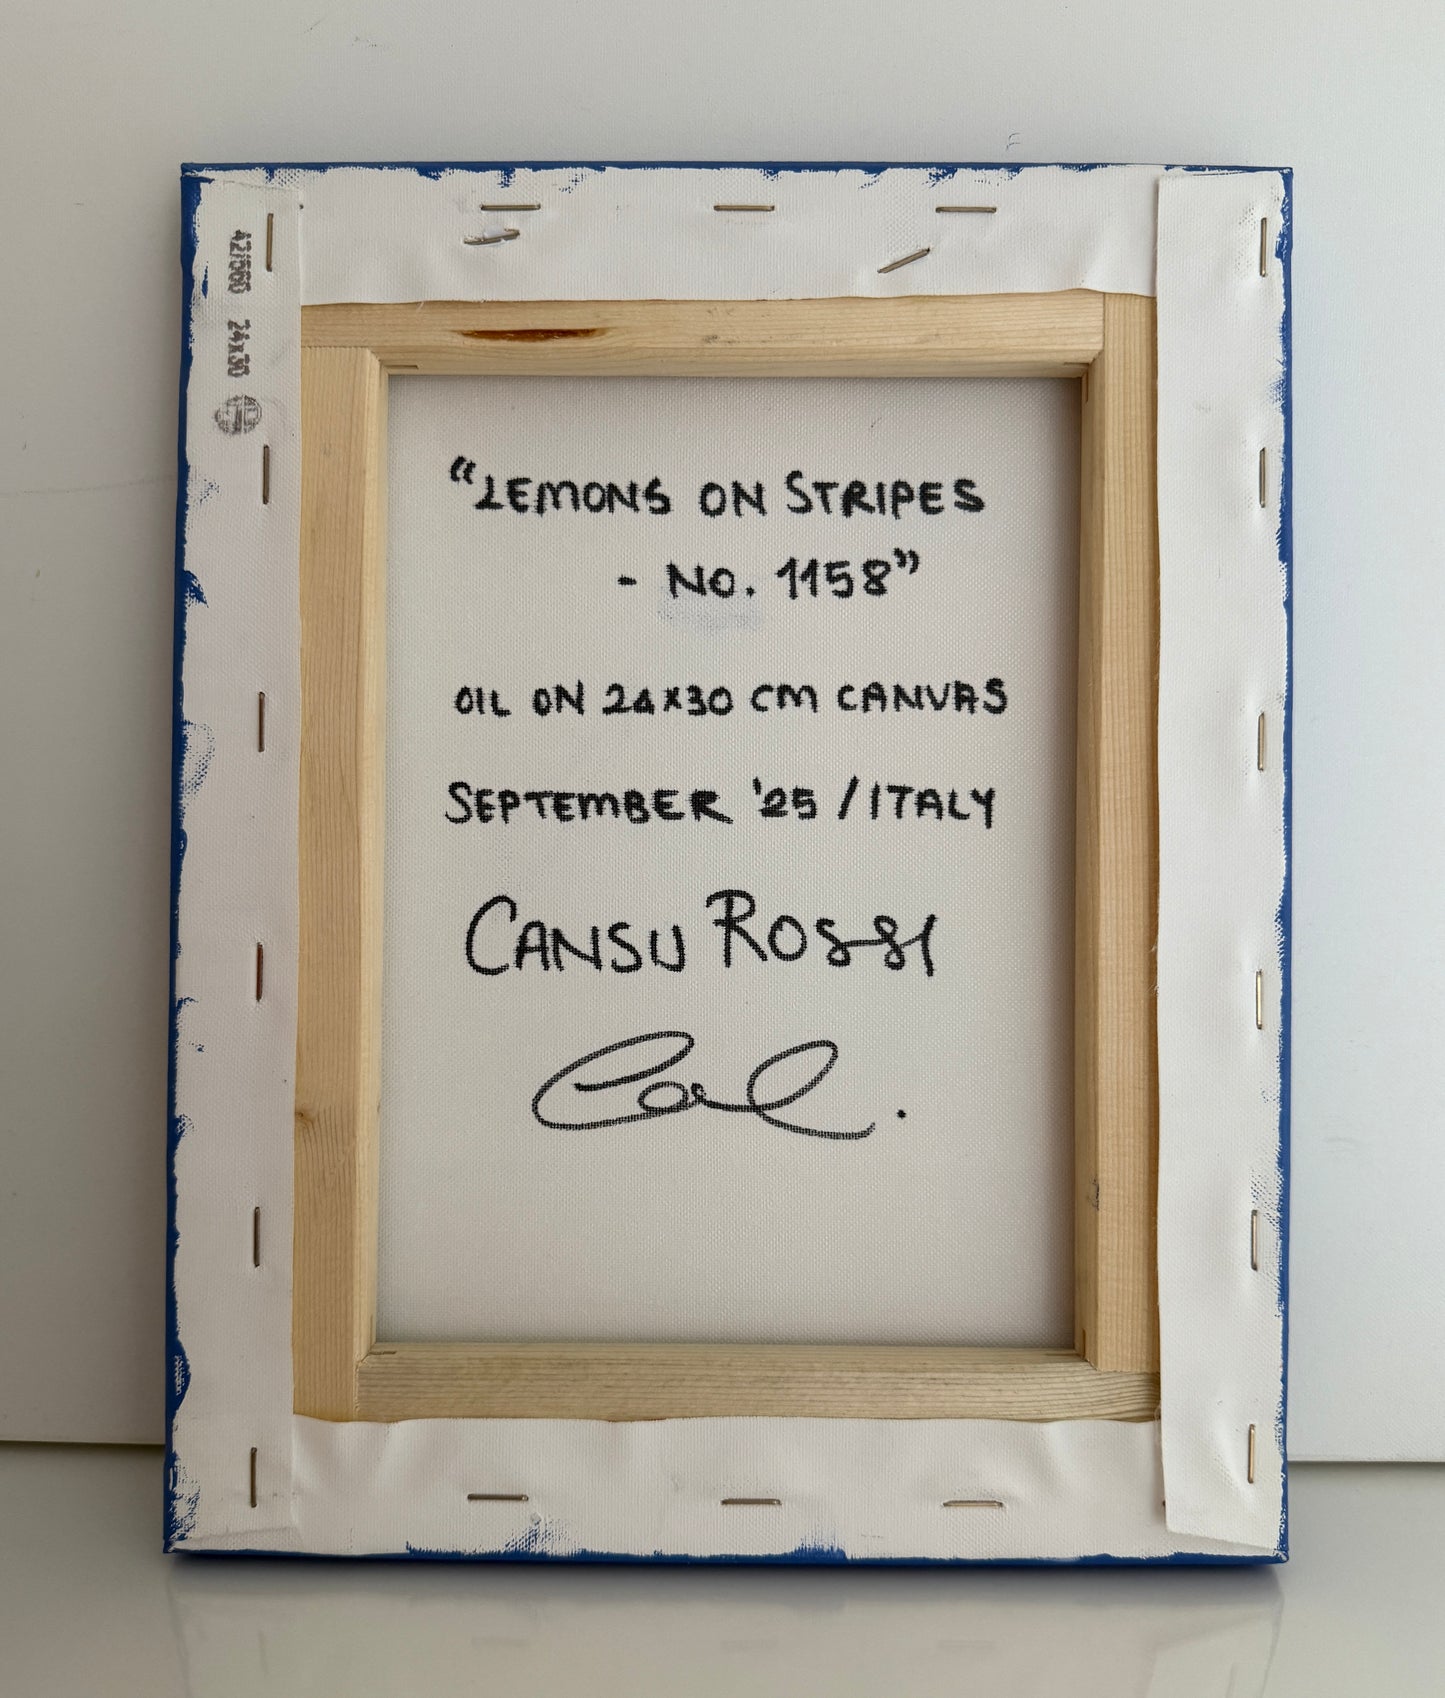 42/560 24x30
“LEMONS ON STRIPES
- NO. 1158”
OIL ON 24x30 CM CANVAS
SEPTEMBER '25 / ITALY
CANSU ROSSI